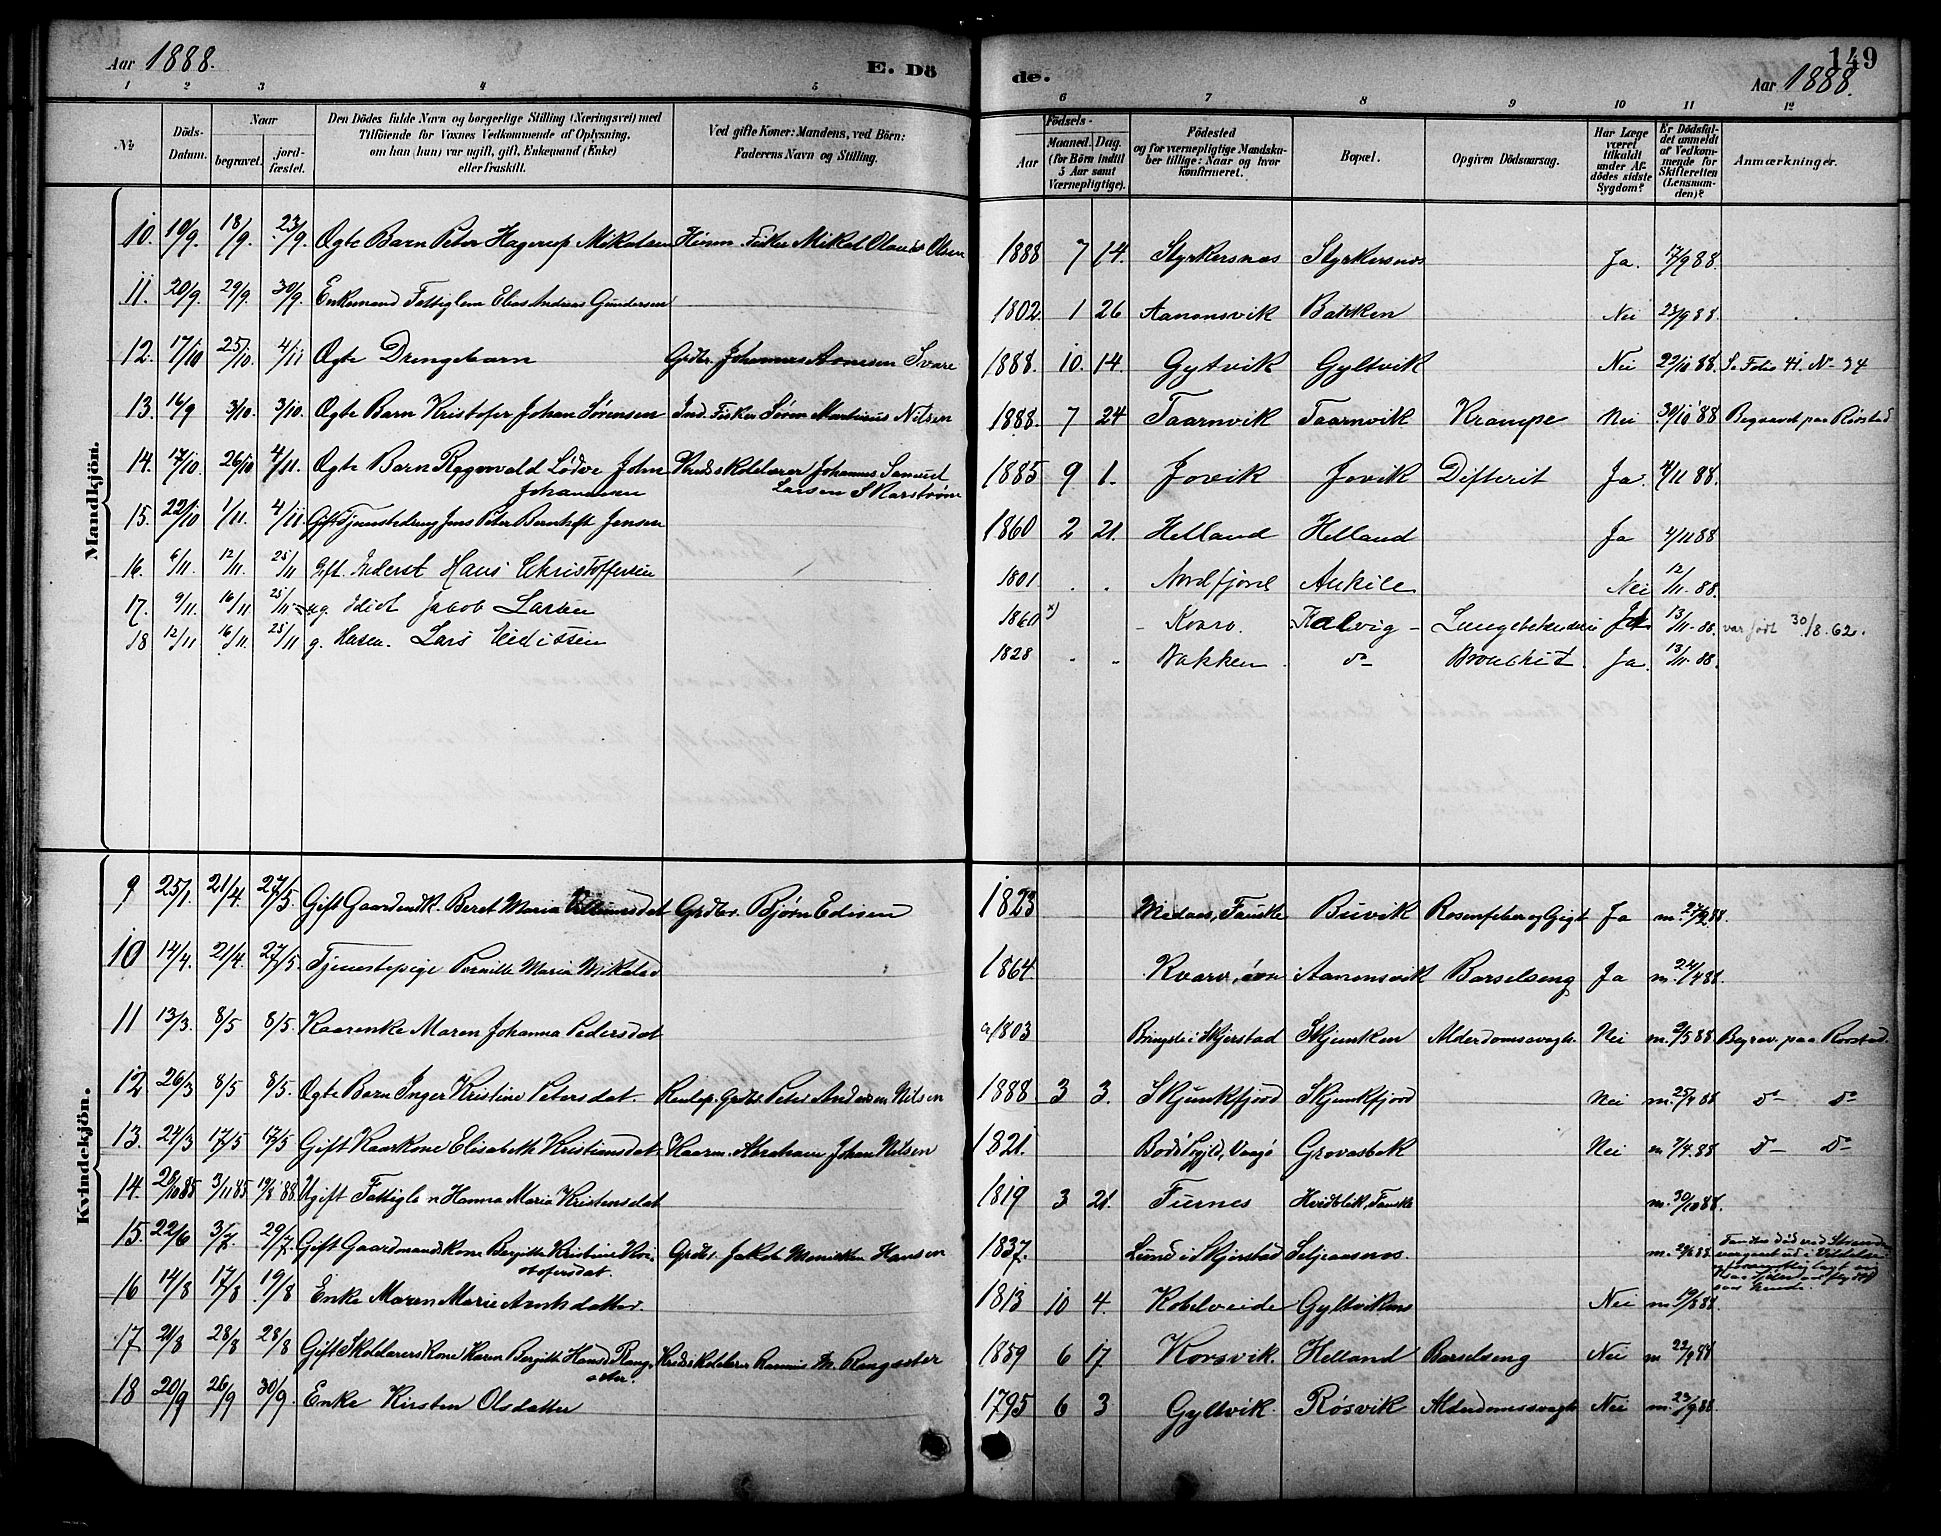 149
Aar 1888. E. Dö
de. Aar 1888.
1 2 3 4 5 6 7 8 9 10 11 12
No
Döds-Datum.
Naar
begravet.
jord-fæstet.
Den Dödes fulde Navn og borgerlige Stilling (Næringsvei) med
Tilföiende for Voxnes Vedkommende af Oplysning,
om han (hun) var ugift, gift, Enkemand (Enke)
eller fraskilt.
Ved gifte Koner: Mandens, ved Börn:
Faderens Navn og Stilling.
Födsels-
Aar
Maaned. Dag.
(for Börn indtil
5 Aar samt
Værnepligtige).
Födested
og for værnepligtige Mandska-
ber tillige: Naar og hvor
konfirmeret.
Bopæl.
Opgiven Dödsaarsag.
Har Læge
været
tilkaldt
under Af-
dödes sidste
Sygdom?
Er Dödsfal-
det anmeldt
af Vedkom-
mende for
Skifteretten
(Lensman-
den)?
Anmærkninger.
Mandkjön.
10. 10/9. 18/9. 23/9. Ægte Barn Peter Hagerup Mikalsen Fisker Mikal Olaus Olsen 1888 7 14. Styrkersnæs Styrkersnæs Ja. 17/9 88.
11. 20/9. 29/9. 30/9. Enkemand Fattiglem Elias Andreas Gundersen 1802. 1 26 Aanonsvik Bakken Nei 23/9 88.
12. 17/10 25/10. 4/11 Ægte Drengebarn Grdbr. Johannes Svare 1888. 10. 14. Gyltvik Gyltvik Nei 22/10 88. Se Folio 41. N- 34
13. 16/9 3/10. 3/10. Ægte Barn Kristofer Johan Sørensen Ind. Fisker Søren Martinus Nilsen 1888. 7 24 Taarnvik Taarnvik Krampe Nei 30/10 88 Begravet paa Rørstad
14. 17/10. 26/10 4/11. Ægte Barn Rognvald Lødve John Johannesen Kredsskolelærer Johannes Samuel Larsen Skarstrøm 1885 9 1. Jovik Jovik Difterit Ja. 4/11 88.
15. 22/10 1/11. 4/11. Gift Tjenestedreng Jens Peter Bernhoft Jensen 1860 2 21. Helland Helland Ja 4/11 88
16. 6/11. 12/11. 25/11 Gift. Inderst Hans Christoffersen 1801. Nordfjord Ankile Nei 12/11. 88.
17. 9/11. 16/11. 25/11 ug. Idiot Jacob Larsen 1860 x) Kvarv. Kalvig Ja 13/11. 88. var født 30/8. 62.
18 12/11 16/11. 25/11 g. Lars Eedissen 1828 Bakken do Bronchit. Ja. 13/11. 88.
Kvindekjön.
9 25/1. 21/4. 27/5. Gift Gaardmdk. Beret Maria Grdbr. Bjørn Edisen 1823 Medaas, Fauske Buvik Rosenfeber og Gigt Ja m. 27/2 88.
10 14/4. 21/4. 27/5. Tjenestepige Pernille Maria Mikalsd 1864. Kvarv, Aanonsvik Barselseng Ja m. 24/4 88.
11 13/3. 8/5 8/5. Kaarenke Maren Johanna Pedersdat a 1803 Bringsli i Skjerstad Skjunken Alderdomssvagh. Nei m. 9/5 88 Begrav. paa Rørstad.
12. 26/3 8/5 8/5. Ægte Barn Inger Kristine Petersdat. Grdbr. Peter Andersen Nilsen 1888 3 3. Skjunkfjord Skjunkfjord Nei m. 25/4 88 do do
13. 24/3 17/5 17/5 Gift Kaarkone Elisabeth Kristiansdat. Kaarm. Abraham Johan Nilsen 1821. Grovasbak Nei m 7/4. 88 do do
14. 26/10 85 3/11 85 19/8 88. Ugift Fattiglem Hanna Maria Kristensdat 1819 3 21. Furnes Hvidblik, Fauske m. 30/10 88.
15. 22/6 3/7. 29/7. Gift Gaardmandskone Bergitte Kristine Kristofersdat. Grdbr. Jakob Hansen 1837. Lund i Skjerstad Seljeaasnes. m. 29/6 88. Fandtes død ved Stranden
16 14/8 17/8 19/8 Enke Maren Marie Arntsdatter. 1813 10 4. Kobelveide Gyltviknes Nei m 19/8 88
17. 21/8 28/8 28/8 Gift Skolelærerskone Karen Bergitte Hansd. Rangsæter. Kredsskolelærer Rasmus M. Rangsæter 1859 6 17 Korsvik. Helland Barselseng Nei m 22/9 88
18 20/9 26/9 30/9. Enke Kirsten Olsdatter 1795 6 3 Gyltvik. Røsvik Alderdomssvagh Nei m. 23/9 88